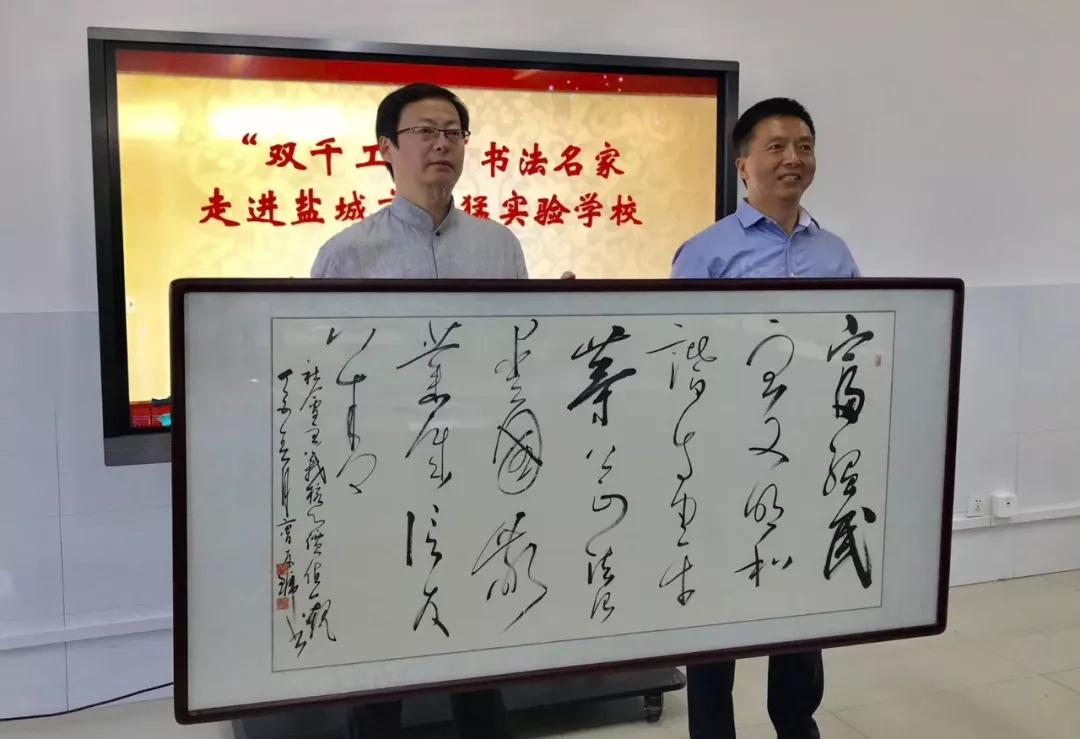 “双千工 书法名家
走进盐城 猛实验学校
富强民
主文明和
谐自由平
等公正法治
爱国敬
业诚信友
善
社会主义核心价值观